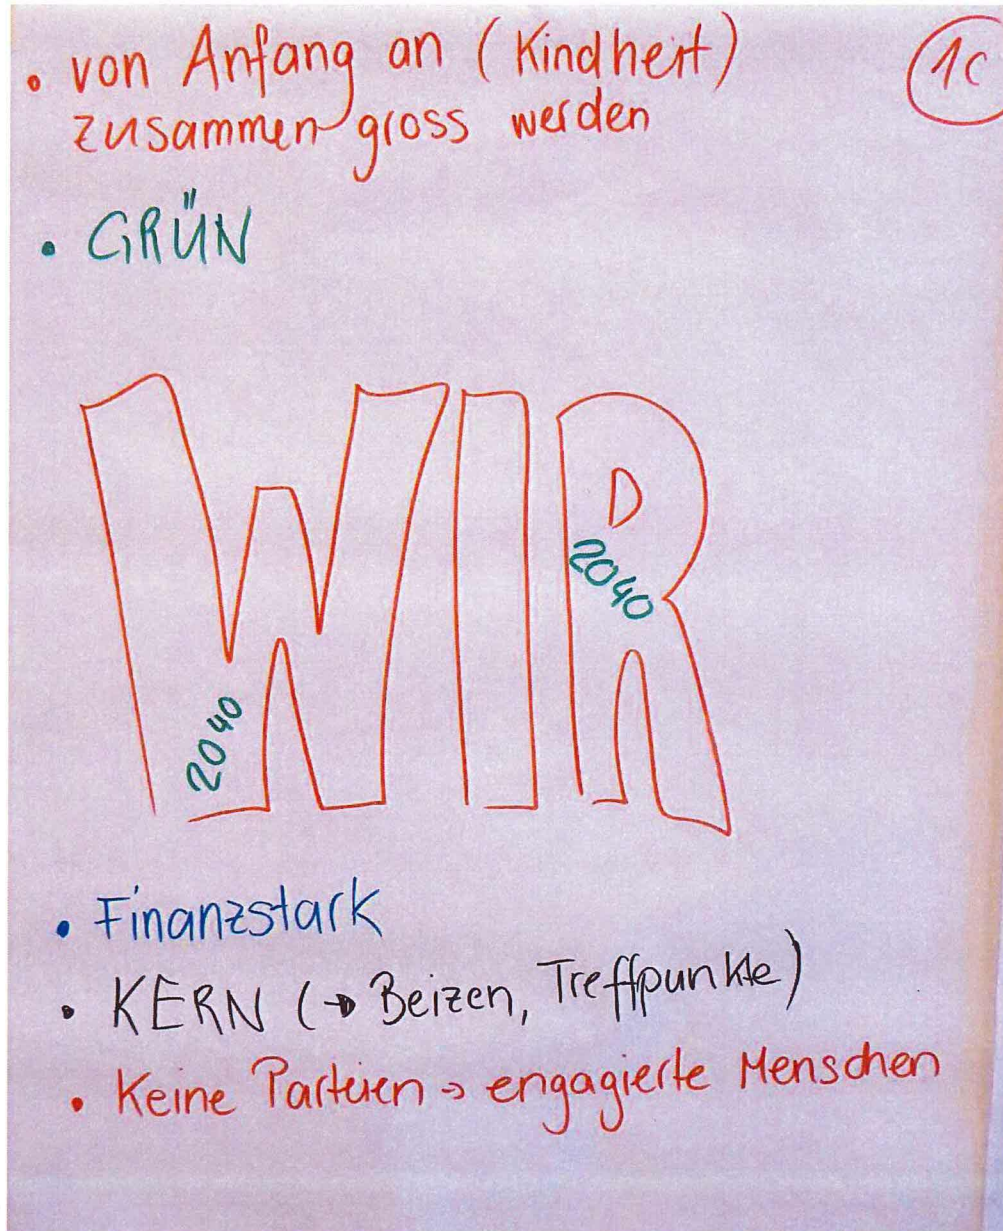 • von Anfang an (Kindheit)
1c
zusammen gross werden
• GRÜN
WIR
2040
2040
• Finanzstark
• KERN (→ Beizen, Treffpunkte)
• Keine Parteien → engagierte Menschen